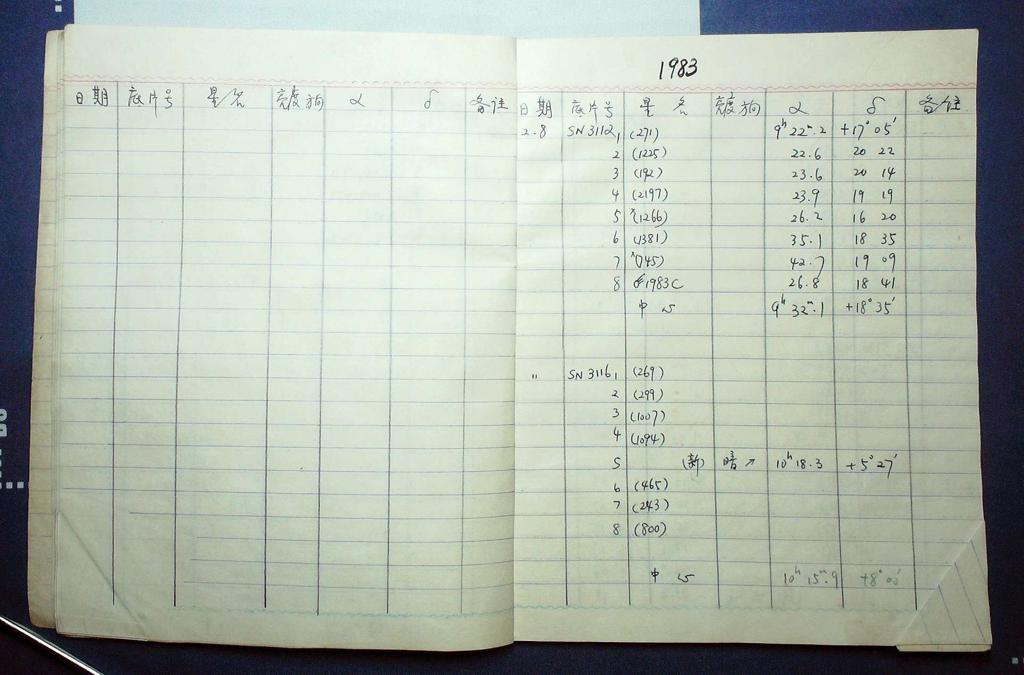 日期 底片号 星名 亮度 方向 α δ 备注
1983
日期 底片号 星名 亮度 方向 α δ 备注
2.8 SN3112, 1 (271) 9ʰ 22ᵐ.2 +17° 05′
2 (1225) 22.6 20 22
3 (192) 23.6 20 14
4 (2197) 23.9 19 19
5 (1266) 26.2 16 20
6 (1381) 35.1 18 35
7 (745) 42.7 19 09
8 1983C 26.8 18 41
中心 9ʰ 32ᵐ.1 +18° 35′
〃 SN3116, 1 (269)
2 (299)
3 (1007)
4 (1094)
5 (新) 暗 ↗ 10ʰ 18.3 +5° 27′
6 (465)
7 (243)
8 (800)
中心 10ʰ 15ᵐ.9 +8° 00′